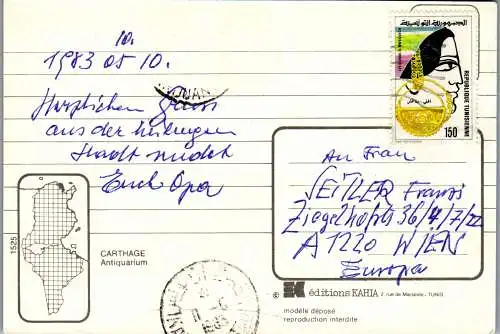 10.
1983 05 10.
Herzlichen Gruss
aus der heiligen
Stadt sendet
Euch Opa
الجمهورية التونسية
REPUBLIQUE TUNISIENNE
150
An Frau
SEITLER Franzi
Ziegelhofstr 36/4/7/22
A1220 WIEN
Europa
1525
CARTHAGE
Antiquarium.
© éditions KAHIA 2. rue de Marseille - TUNIS
modèle déposé
reproduction interdite